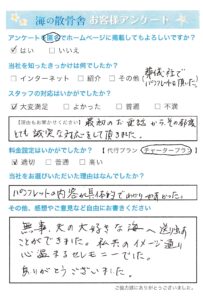 海の散骨舎 お客様アンケート
アンケートを匿名でホームページに掲載してもよろしいですか?
はい いいえ
当社を知ったきっかけは何でしたか?
インターネット 紹介 その他(葬儀社で
パンフレットを頂いた)
スタッフの対応はいかがでしたか?
大変満足 よかった 普通 不満
【理由もお書きください】最初のお電話から、その都度
とても誠実な対応をして頂きました。
料金設定はいかがでしたか?【代行プラン・チャータープラン】
適切 普通 高い
当社をお選びいただいた理由はなんでしたか?
パンフレットの内容が具体的でわかり易かった。
その他、感想やご意見など自由にお書きください
無事、夫の大好きな海へ送り出す
ことができました。私共のイメージ通り
心温まるセレモニーでした。
ありがとうございました。
ご協力誠にありがとうございました。